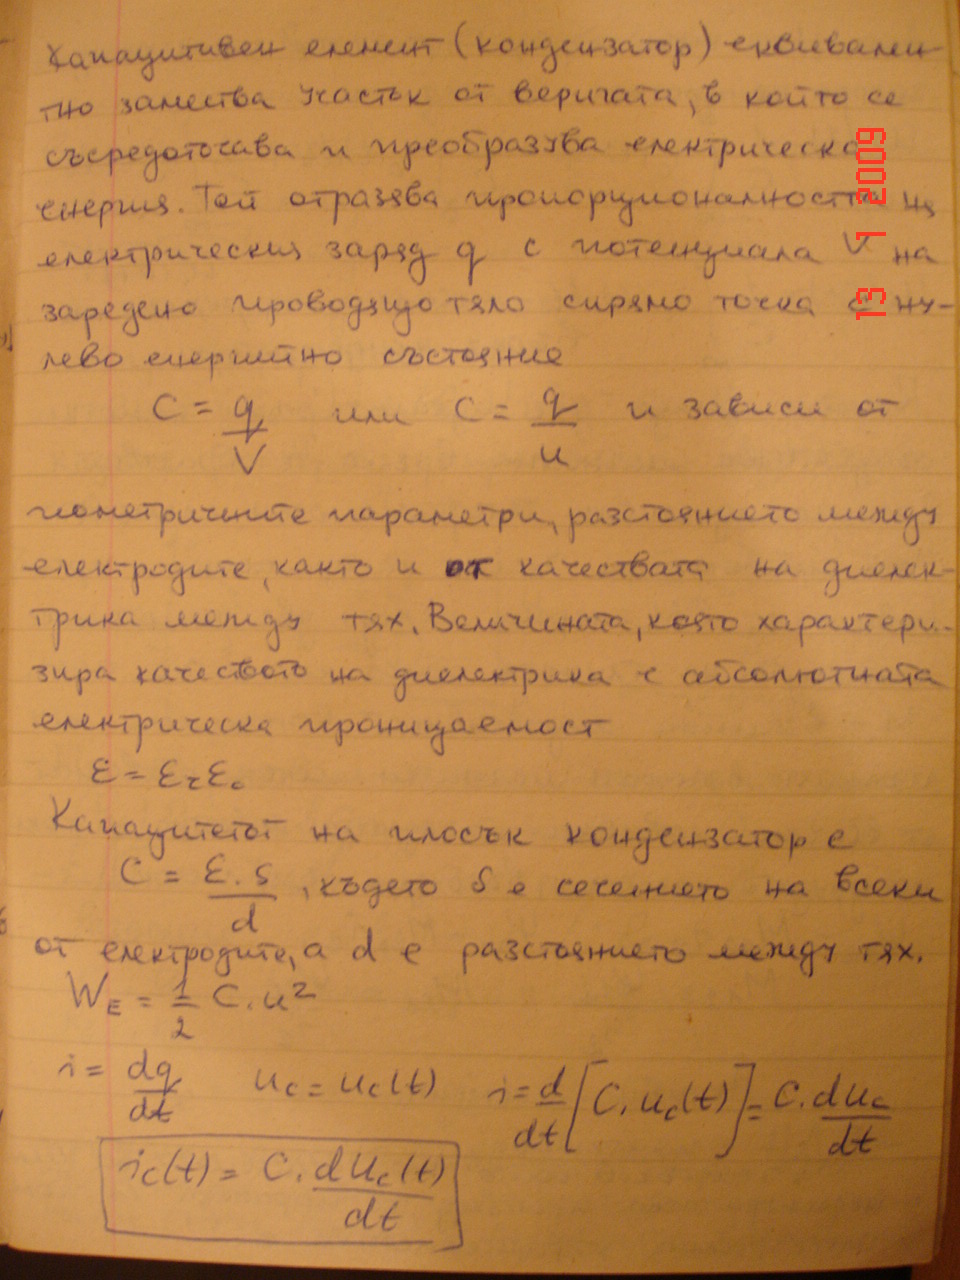 Капацитивен елемент (кондензатор) еквивален-
тно замества участък от веригата, в който се
съсредоточава и преобразува електрическа
енергия. Той отразява пропорционалността на
електрическия заряд q с потенциала V на
заредено проводящо тяло спрямо точка с ну-
лево енергийно състояние
C = q/V или C = q/u и зависи от
геометричните параметри, разстоянието между
електродите, както и от качествата на диелек-
трика между тях. Величината, която характери-
зира качеството на диелектрика е абсолютната
електрическа проницаемост
ε = εrε0
Капацитетът на плосък кондензатор е
C = ε.S/d , където S е сечението на всеки
от електродите, а d е разстоянието между тях.
WE = 1/2 C.u²
i = dq/dt uc = uc(t) i = d/dt [C.uc(t)] = C.duc/dt
ic(t) = C.duc(t)/dt
13 1 2009